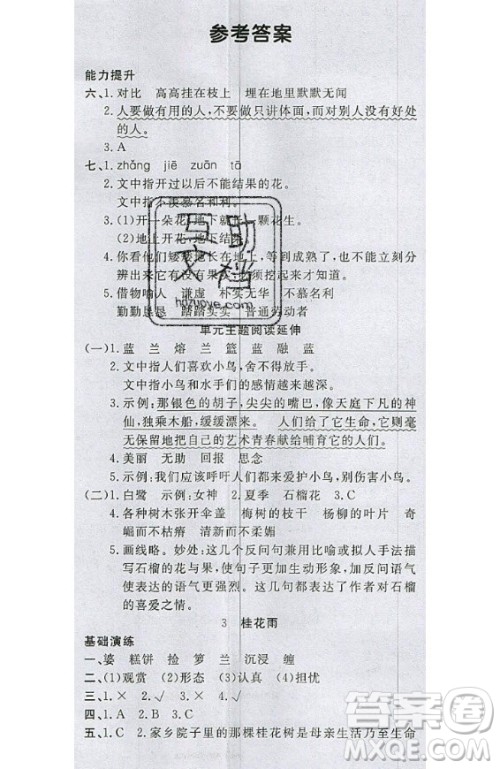 参考答案
能力提升
六、1. 对比 高高挂在枝上 埋在地里默默无闻
2. 人要做有用的人，不要做只讲体面，而对别人没有好处的人。
3. A
七、1. zhǎng jiē zuān tā
2. 文中指开过以后不能结果的花。
文中指不羡慕名和利。
3. (1)开一朵花，地下结一颗花生。
(2)地上开花，地下结果
4. 你看他们矮矮地长在地上，等到成熟了，也不能立刻分辨出来它有没有果实，必须挖起来
5. 借物喻人 谦虚 朴实无华 不羡慕名利
勤勤恳恳 踏踏实实 普通劳动者
单元主题阅读延伸
(一)1. 蓝 兰 熔 兰 篮 蓝 融 蓝
2. 文中指人们喜欢小鸟，对小鸟感兴趣。
文中指人们和小鸟的感情越来越深。
3. 示例：那银色的胡子，尖尖的嘴巴，像天庭下凡的神仙，独乘木船，缓缓漂来。 人们给了它生命，它则毫无保留地把自己的艺术青春献给哺育它的人们。
4. 美丽 无助 回报 思念
5. 示例：我们应该呼吁人们爱护小鸟，别伤害小鸟。
(二)1. 白鹭 示例：女神 2. 夏季 石榴花 3. C
4. 各种树木张开伞盖 梅树的枝干 杨柳的叶片 奇崛而不枯瘠 清新而不柔媚
5. 画线略。妙处：这几个反问句兼以比喻或拟人手法描写石榴的句子更加生动形象。加上反问句使语气表达的语气更加强烈，这几句都体现了作者对石榴的喜爱之情。
3 桂花雨
基础演练
一、婆 糕饼 捡 箩 兰 沉浸 缠
二、(1)观赏 (2)形态 (3)认真 (4)担忧
三、1. × 2. √ 3. × 4. √
四、1. A 2. B 3. C 4. A
五、1. C 2. 家乡院子里的那棵桂花树是母亲生活乃至生命
写助文档
hdzuoye.com
答案圈
MXQE.COM